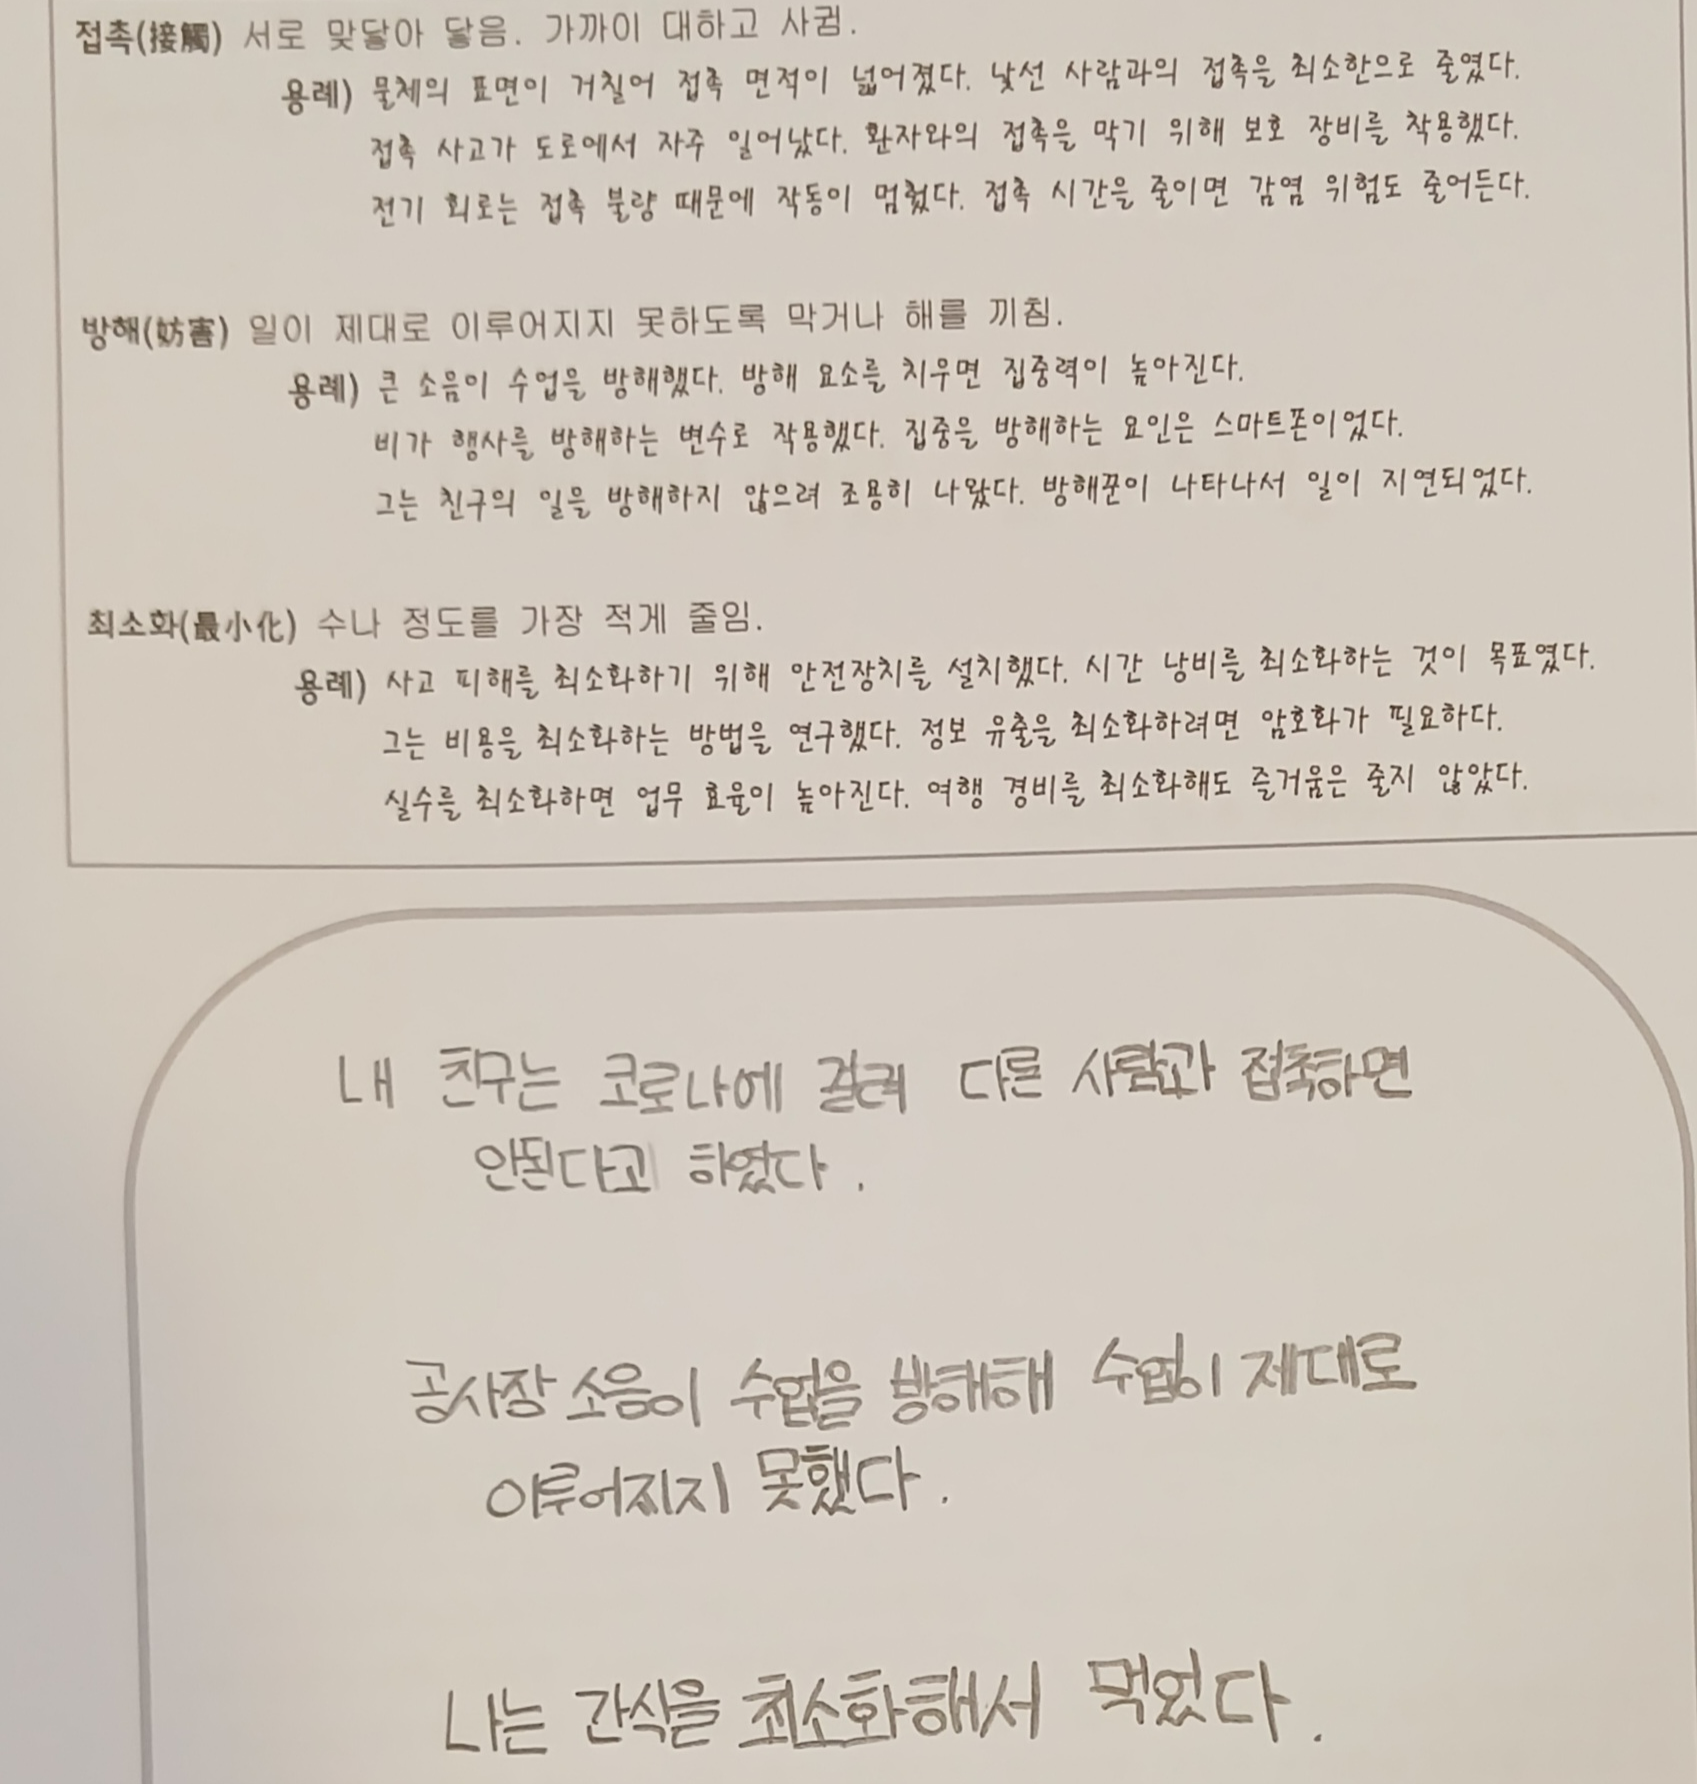 접촉(接觸) 서로 맞닿아 닿음. 가까이 대하고 사귐.
용례) 물체의 표면이 거칠어 접촉 면적이 넓어졌다. 낯선 사람과의 접촉을 최소한으로 줄였다.
접촉 사고가 도로에서 자주 일어났다. 환자와의 접촉을 막기 위해 보호 장비를 착용했다.
전기 회로는 접촉 불량 때문에 작동이 멈췄다. 접촉 시간을 줄이면 감염 위험도 줄어든다.
방해(妨害) 일이 제대로 이루어지지 못하도록 막거나 해를 끼침.
용례) 큰 소음이 수업을 방해했다. 방해 요소를 치우면 집중력이 높아진다.
비가 행사를 방해하는 변수로 작용했다. 집중을 방해하는 요인은 스마트폰이었다.
그는 친구의 일을 방해하지 않으려 조용히 나왔다. 방해꾼이 나타나서 일이 지연되었다.
최소화(最小化) 수나 정도를 가장 적게 줄임.
용례) 사고 피해를 최소화하기 위해 안전장치를 설치했다. 시간 낭비를 최소화하는 것이 목표였다.
그는 비용을 최소화하는 방법을 연구했다. 정보 유출을 최소화하려면 암호화가 필요하다.
실수를 최소화하면 업무 효율이 높아진다. 여행 경비를 최소화해도 즐거움은 줄지 않았다.
내 친구는 코로나에 걸려 다른 사람과 접촉하면
안된다고 하였다.
공사장 소음이 수업을 방해해 수업이 제대로
이루어지지 못했다.
나는 간식을 최소화해서 먹었다.